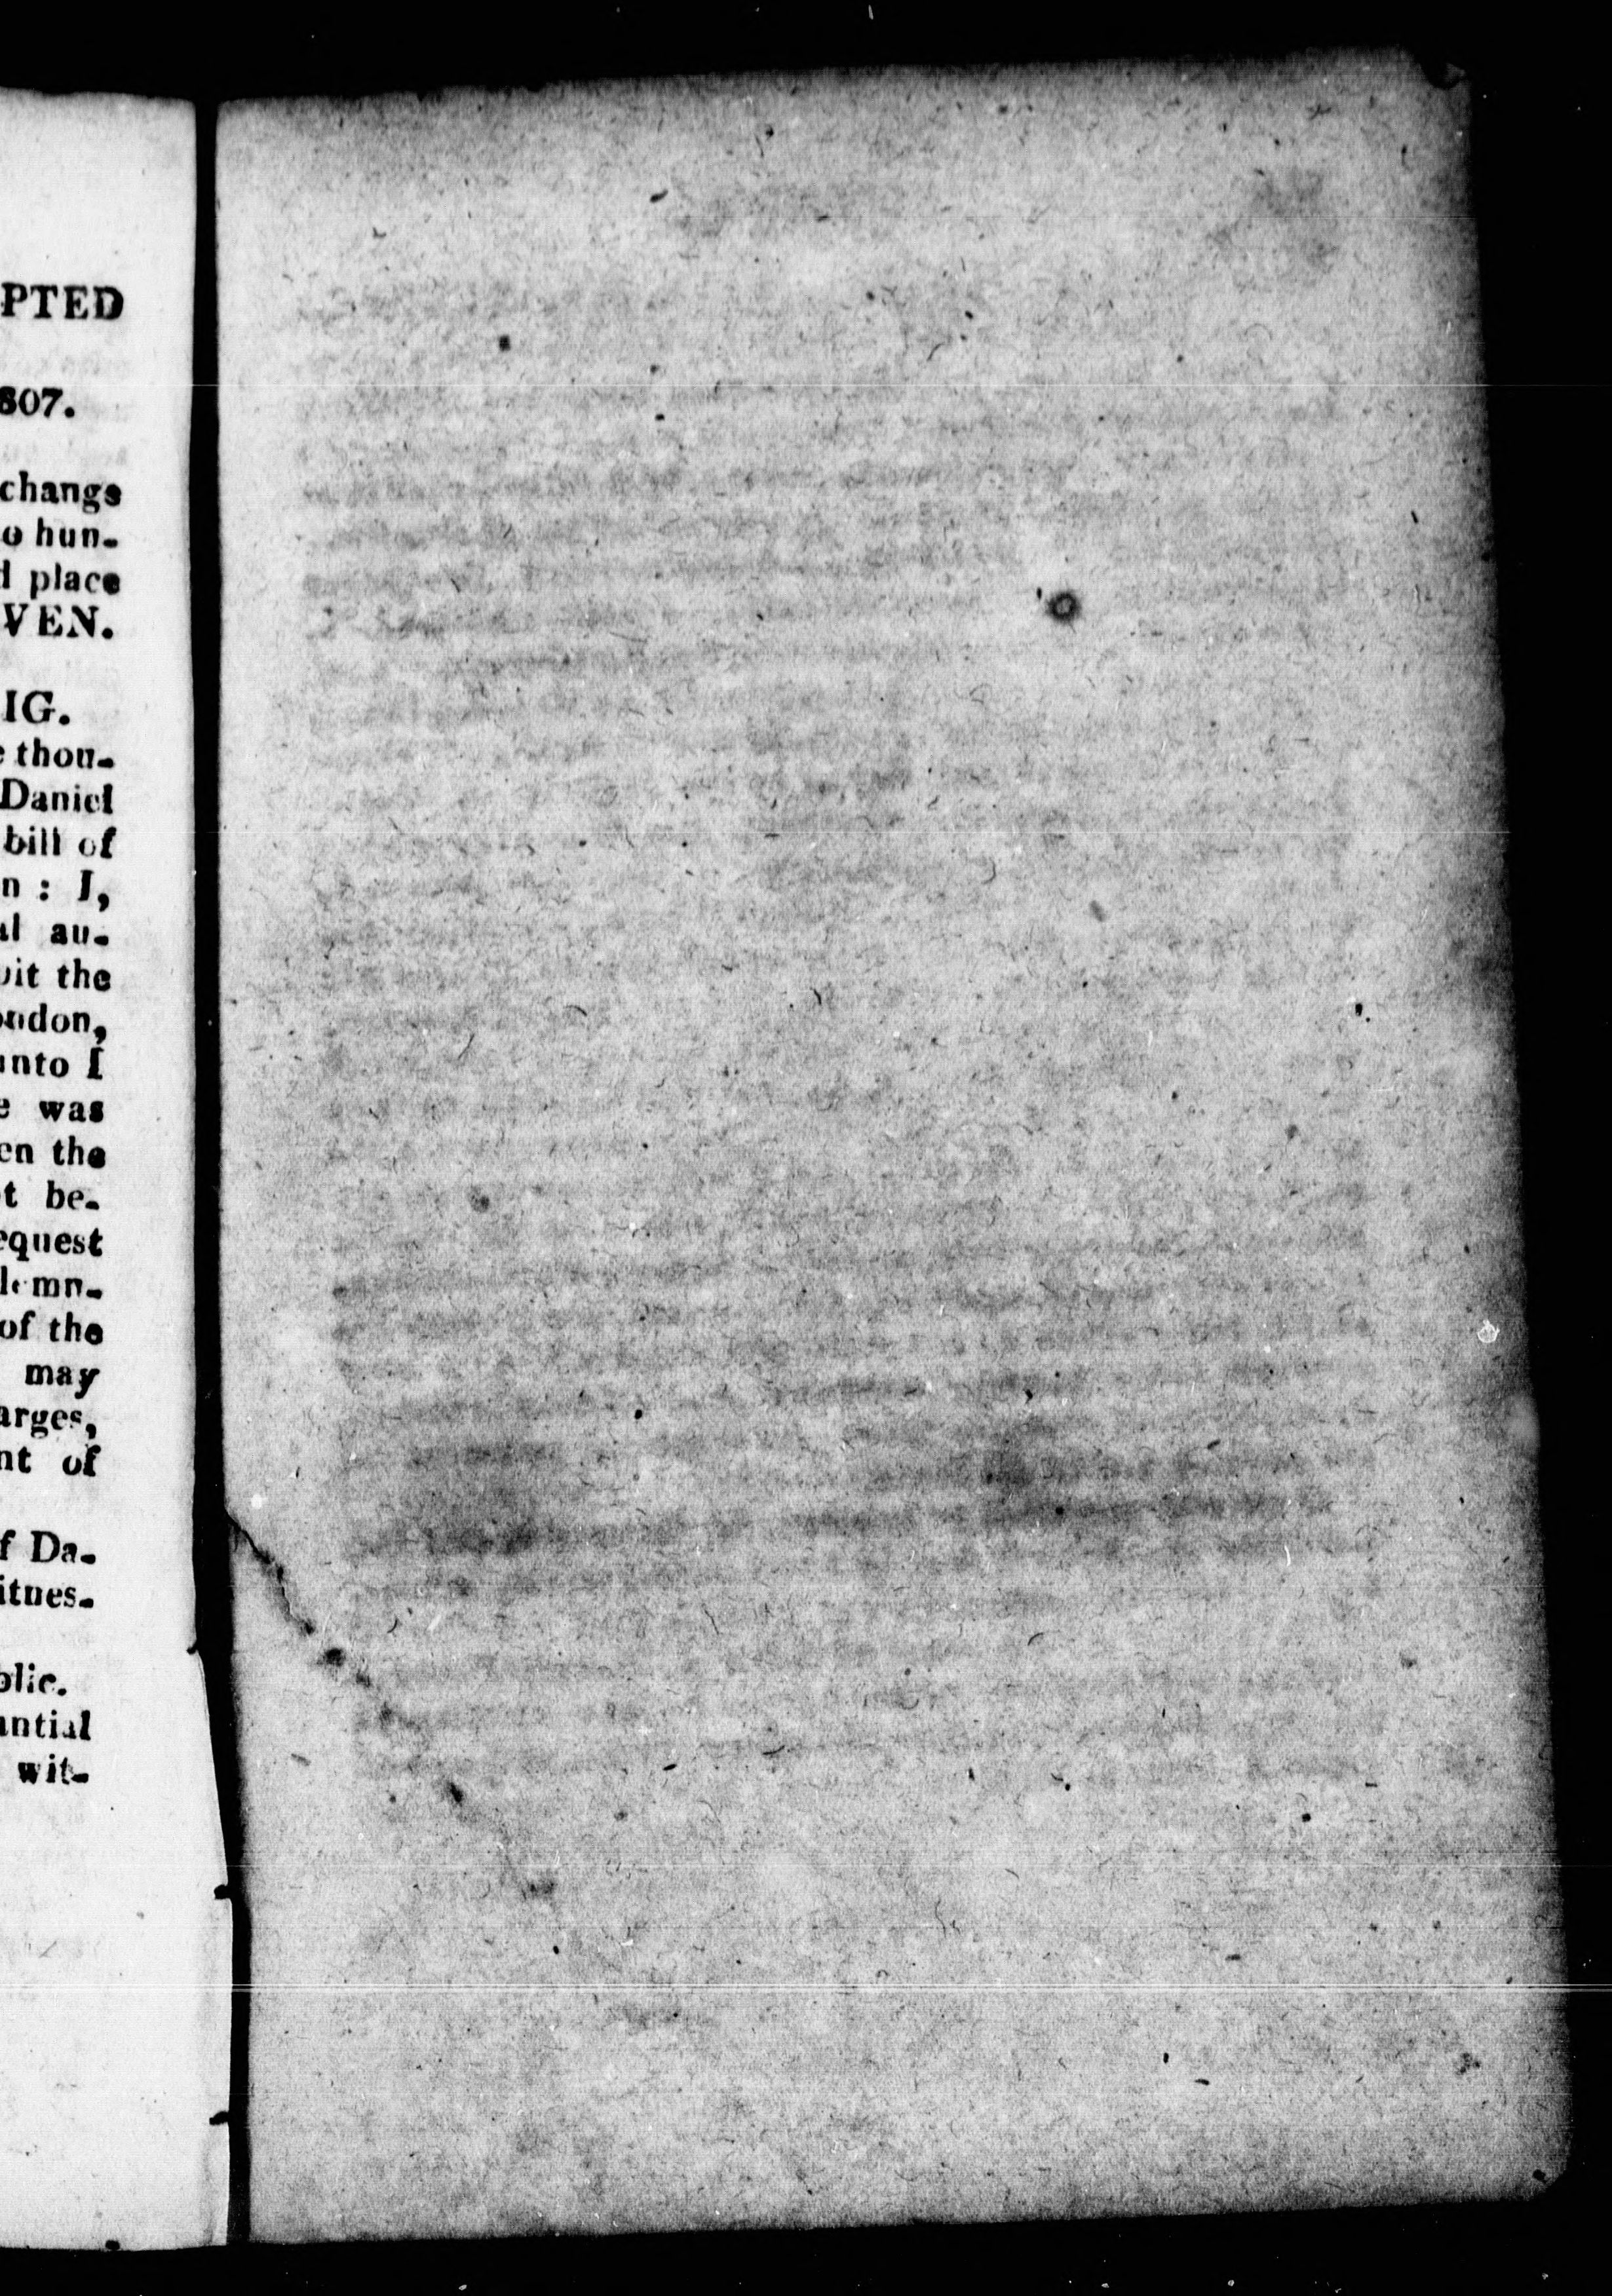 PTED
807.
change
o hun-
d place
VEN.
IG.
e thou-
Daniel
bill of
n : I,
al au-
bit the
ondon,
unto I
e was
en the
t be-
equest
lemn-
of the
may
arges,
nt of
f Da-
itnes-
blic.
antial
wit-